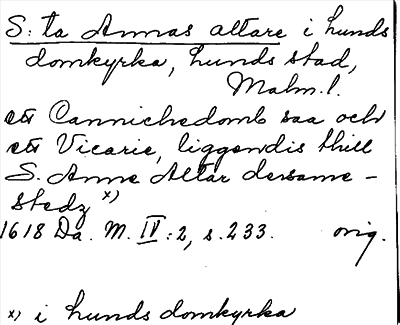 S:ta Annas altare i Lunds
domkyrka, Lunds stad,
Malm. l.
ett Cannichedomb saa och
ett Vicarie, liggendis thill
S. Anne Altar dersamme-
stedz x)
1618 Da. M. IV:2, s. 233. orig.
x) i Lunds domkyrka